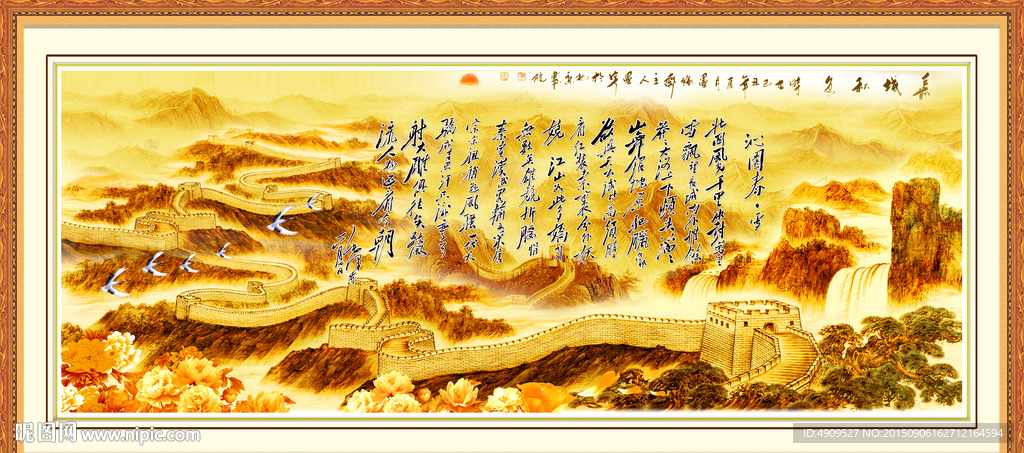 長城秋色
沁園春·雪
北國風光千里冰封萬里
雪飄望長城内外惟餘
莽莽大河上下頓失滔滔
山舞銀蛇原馳臘象
欲與天公試比高須晴日
看红装素裹分外妖
娆 江山如此多嬌引
無數英雄競折腰惜
秦皇漢武略輸文采唐
宗宋祖稍遜風騷一代天
驕成吉思汗只識彎弓
射大雕俱往矣數風
流人物還看今朝
毛澤東
昵图网 www.nipic.com
ID:4909527 NO:20150906162712164594